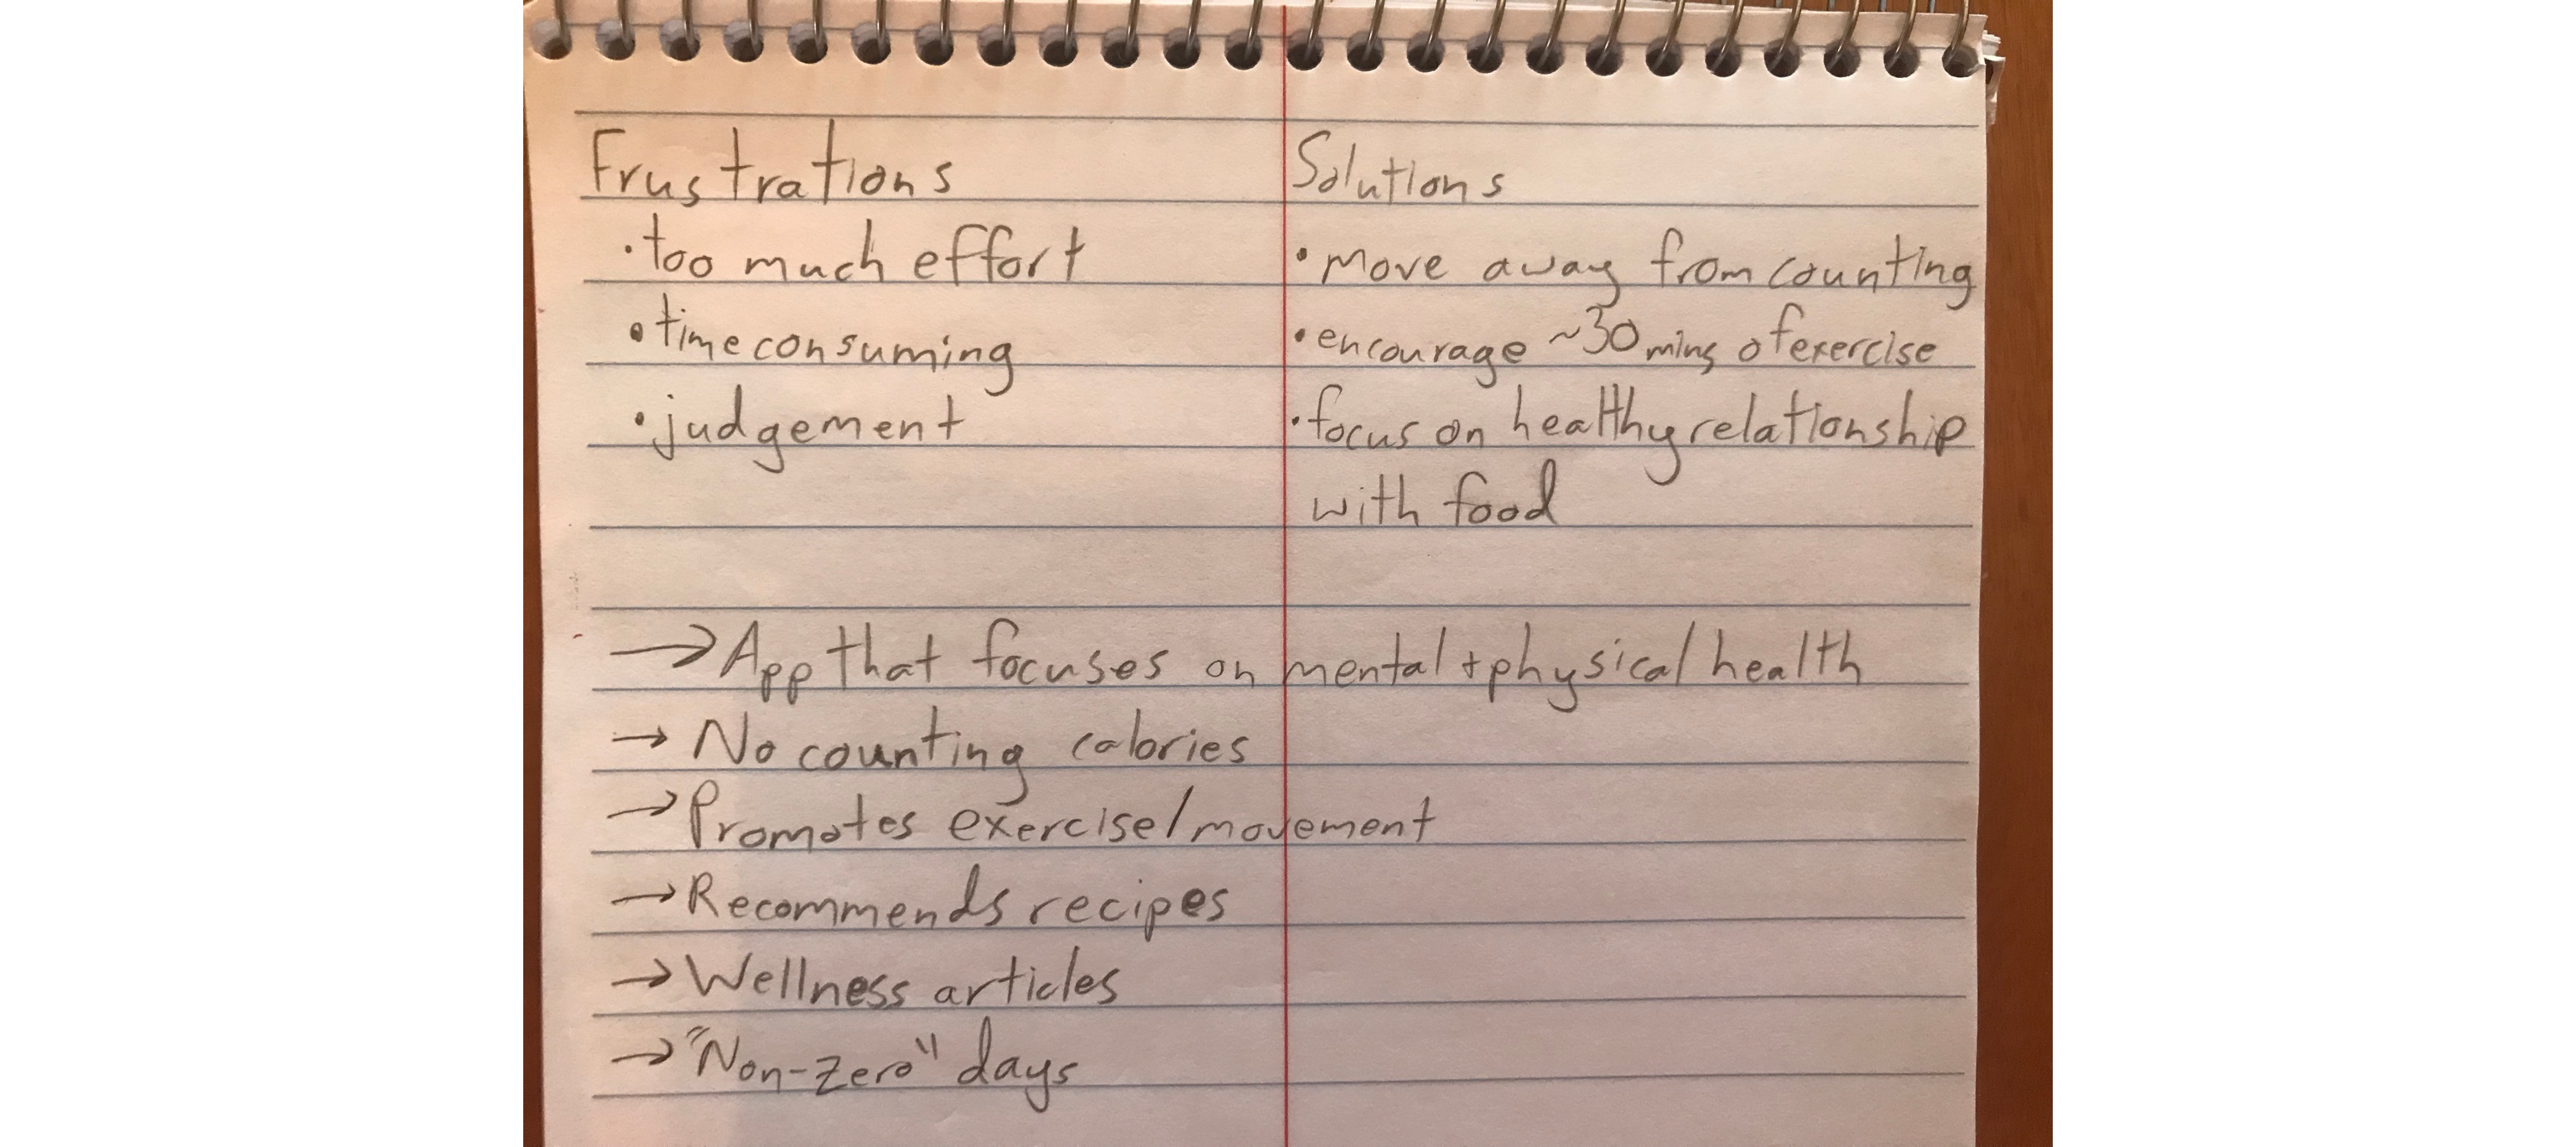 Frustrations
• too much effort
• time consuming
• judgement
Solutions
• move away from counting
• encourage ~30 mins of exercise
• focus on healthy relationship
with food
→ App that focuses on mental + physical health
→ No counting calories
→ Promotes exercise/movement
→ Recommends recipes
→ Wellness articles
→ "Non-zero" days